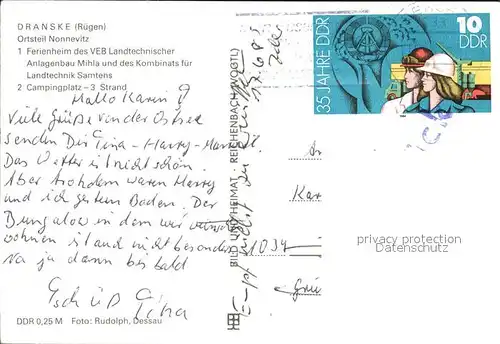 DRANSKE (Rügen)
Ortsteil Nonnevitz
1 Ferienheim des VEB Landtechnischer
Anlagenbau Mihla und des Kombinats für
Landtechnik Samtens
2 Campingplatz – 3 Strand
Hallo Karin!
Viele Grüße von der Ostsee
senden Dir Tina – Harry –
Das Wetter ist nicht schön.
Aber trotzdem waren Harry
und ich gestern Baden. Der
Bungalow in dem wir
wohnen ist auch nicht besonders
Na ja dann bis bald
Tschüß
Tina
DDR 0,25 M Foto: Rudolph, Dessau
BILD UND HEIMAT · REICHENBACH (VOGTL)
17.6.85
35 JAHRE DDR
10
DDR
An
Kar
1034
Grü
privacy protection
Datenschutz